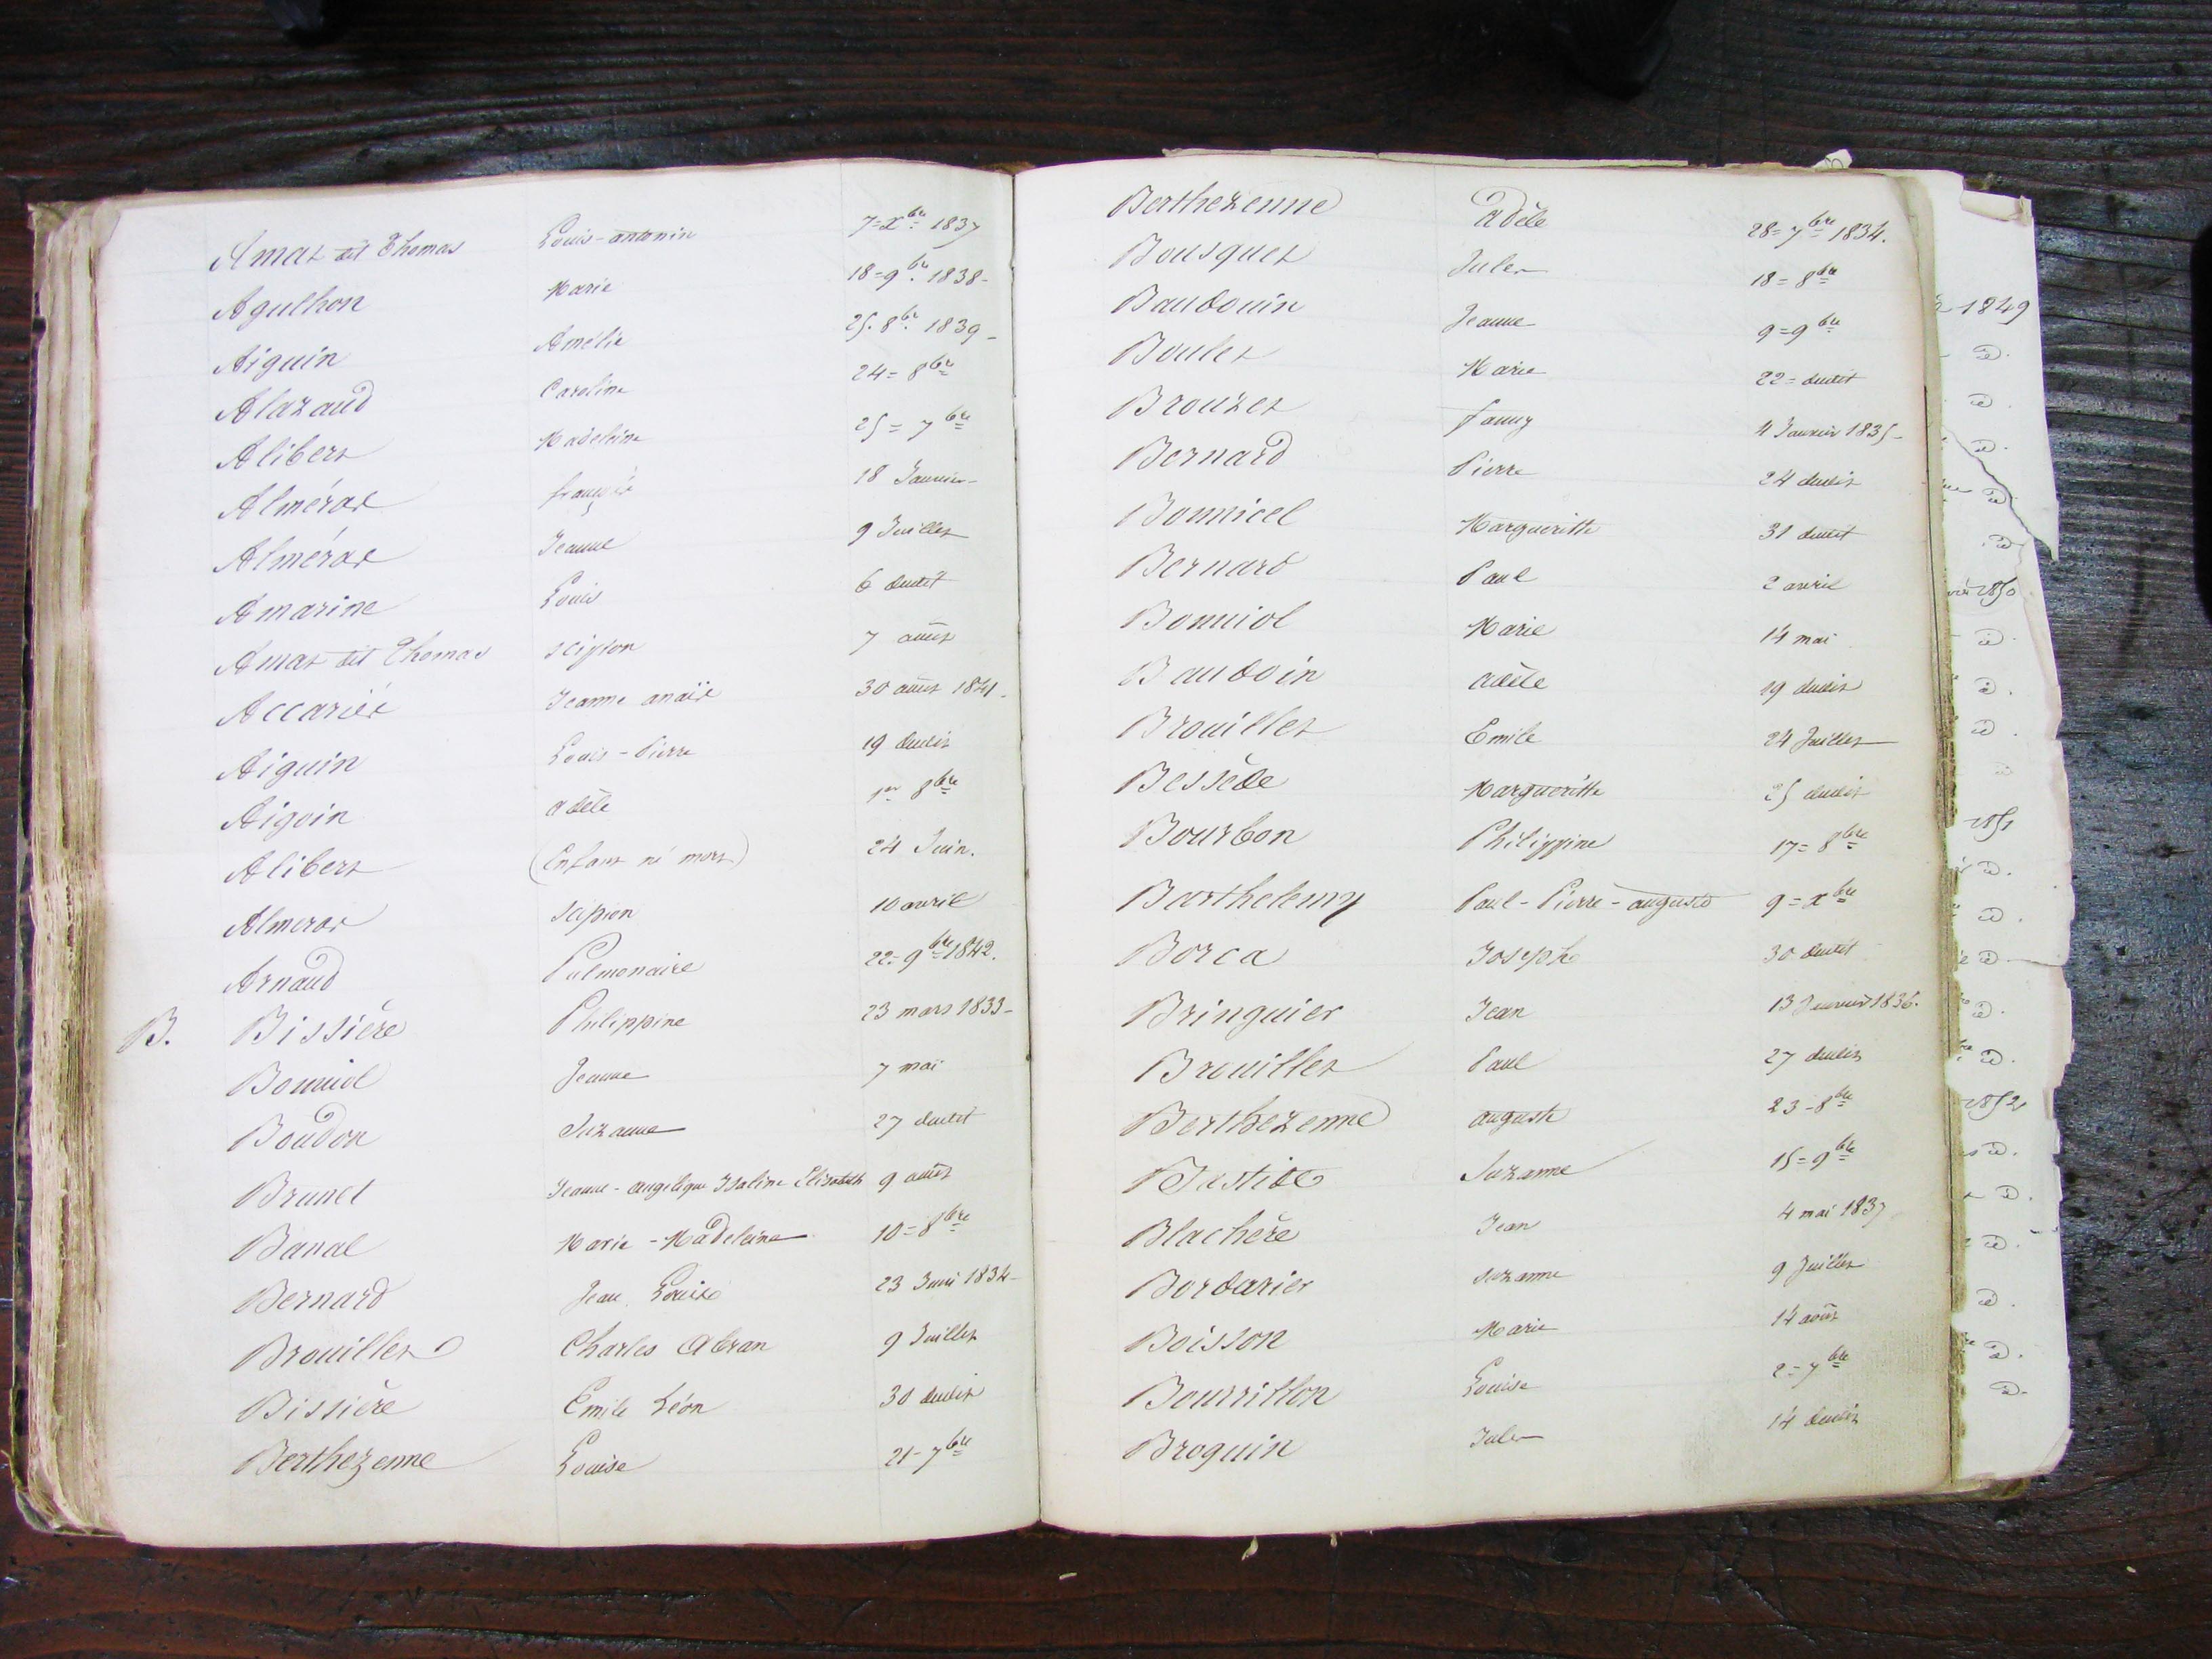 Amat dit Thomas Louis-antonin 7=xbre 1837
Agulhon Marie 18=9bre 1838-
Aiguin Amélie 25. 8bre 1839-
Alazaud Caroline 24=8bre
Alibert Madeleine 25=7bre
Almérac 18 Janvier-
Almérac Jeanne 9 Juillet
Amarine Louis 6 dudit
Amat dit Thomas scipion 7 août
Accariér Jeanne anaïs 30 août 1841-
Aiguin Louis-Pierre 19 dudit
Aigoin adèle 1er 8bre
Alibert (Enfant né mort) 24 Juin.
Almerac scipion 10 avril
Arnaud Pulmonaire 22=9bre 1842.
B. Bissière Philippine 23 mars 1833-
Bonniol Jeanne 7 mai
Boudon Suzanne 27 dudit
Brunet Jeanne-angelique Isaline Elisabeth 9 août
Banal Marie-Madeleine 10=8bre
Bernard Jean Louis 23 Juin 1834-
Brouillet Charles Abran 9 Juillet
Bissière Emile Léon 30 dudit
Berthezenne Louise 21-7bre
Berthezenne adèle 28=7bre 1834.
Bousquet Jules 18=8bre
Baudouin Jeanne 9=9bre
Boulet Marie 22=dudit
Brouzet fanny 4 Janvier 1835-
Bernard Pierre 24 dudit
Bonnicel Margueritte 31 dudit
Bernard Paul 2 avril
Bonniol Marie 14 mai
Baudoin adèle 19 dudit
Brouillet Emile 24 Juillet
Bessède Margueritte 25 dudit
Bourbon Philippine 17=8bre
Barthelemy Paul-Pierre-auguste 9=xbre
Borca Joseph 30 dudit
Bringuier Jean 13 Janvier 1836.
Brouillet Paul 27 dudit
Berthezenne auguste 23-8bre
Bastide Suzanne 15=9bre
Blachère Jean 4 mai 1837
Bordarier suzanne 9 Juillet
Boisson Marie 14 août
Bourrillon Louise 2=7bre
Broquin Jules 14 dudit
1849
1850
1851
1852